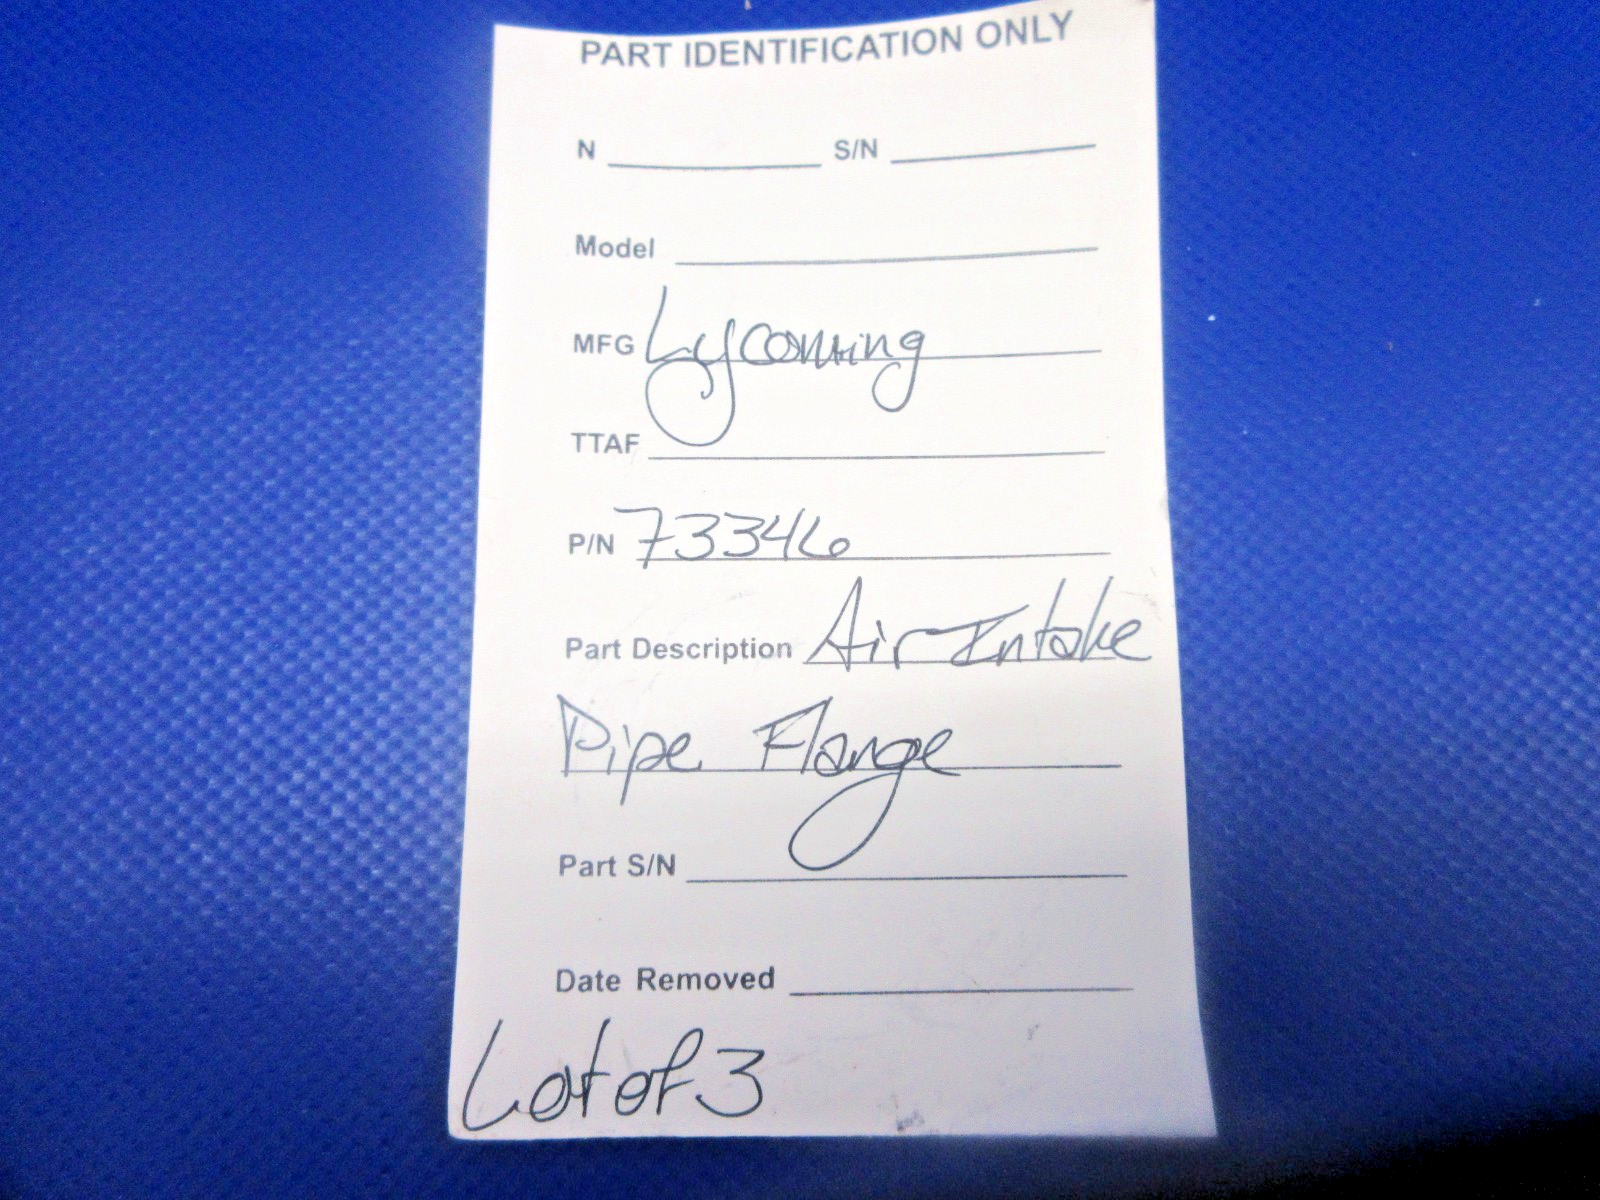 PART IDENTIFICATION ONLY
N S/N
Model
MFG Lycoming
TTAF
P/N 73346
Part Description Air Intake
Pipe Flange
Part S/N
Date Removed
Lot of 3